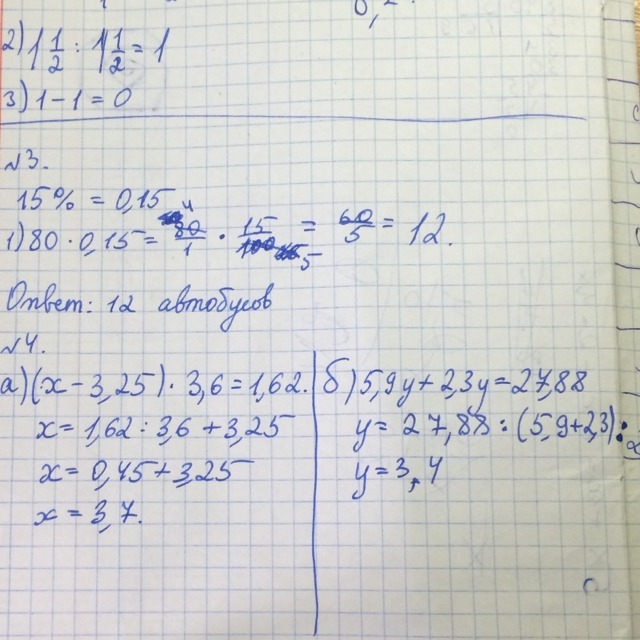 2) 1 1/2 : 1 1/2 = 1
3) 1 - 1 = 0
№3.
15% = 0,15
1) 80 · 0,15 = 80/1 · 15/100 = 60/5 = 12.
Ответ: 12 автобусов
№4.
а) (x - 3,25) · 3,6 = 1,62.
x = 1,62 : 3,6 + 3,25
x = 0,45 + 3,25
x = 3,7.
б) 5,9y + 2,3y = 27,88
y = 27,88 : (5,9 + 2,3)
y = 3,4